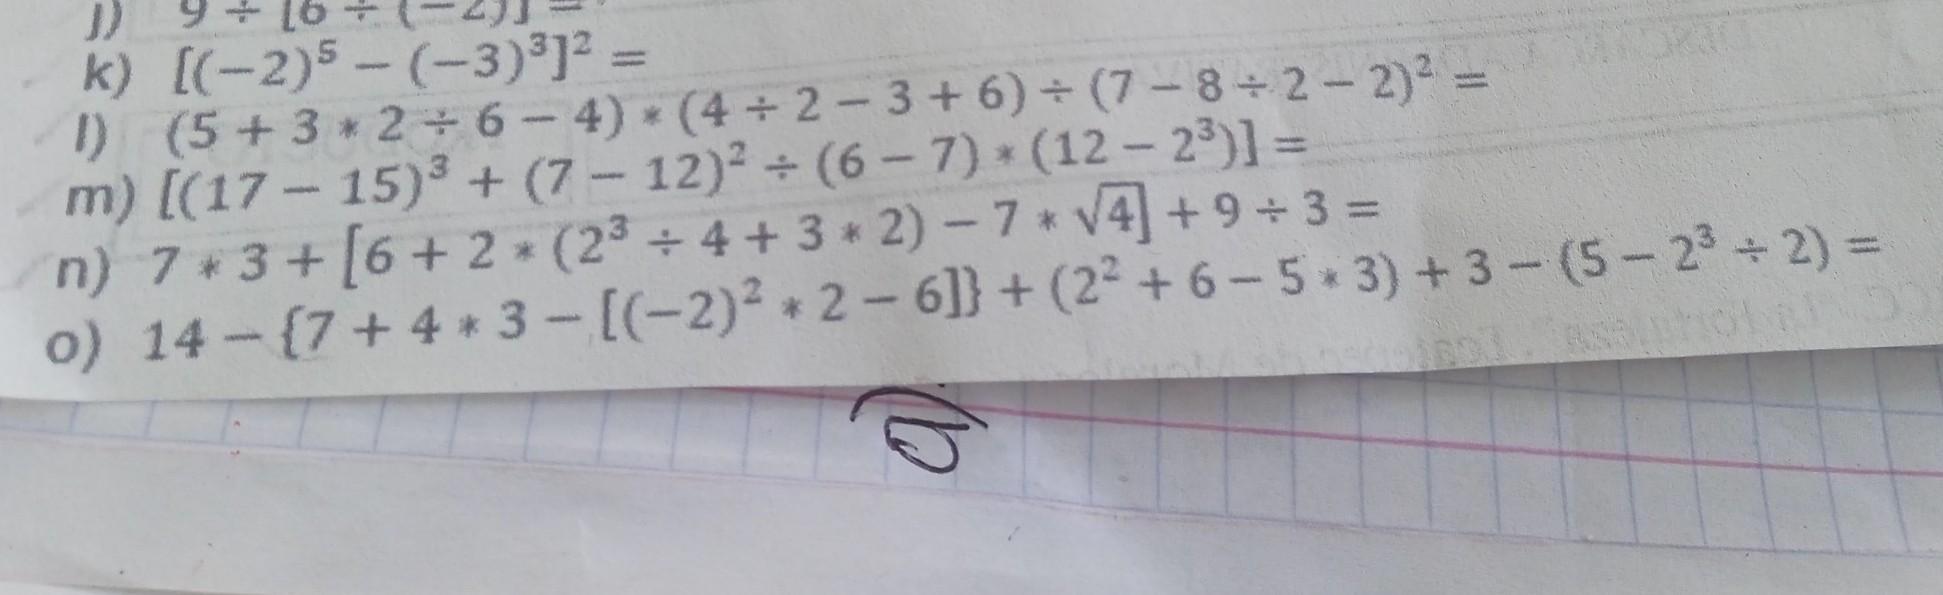 j) 9 ÷ [6 ÷ (−2)] =
k) [(−2)⁵ − (−3)³]² =
l) (5 + 3 * 2 ÷ 6 − 4) * (4 ÷ 2 − 3 + 6) ÷ (7 − 8 ÷ 2 − 2)² =
m) [(17 − 15)³ + (7 − 12)² ÷ (6 − 7) * (12 − 2³)] =
n) 7 * 3 + [6 + 2 * (2³ ÷ 4 + 3 * 2) − 7 * √4] + 9 ÷ 3 =
o) 14 − {7 + 4 * 3 − [(−2)² * 2 − 6]} + (2² + 6 − 5 * 3) + 3 − (5 − 2³ ÷ 2) =